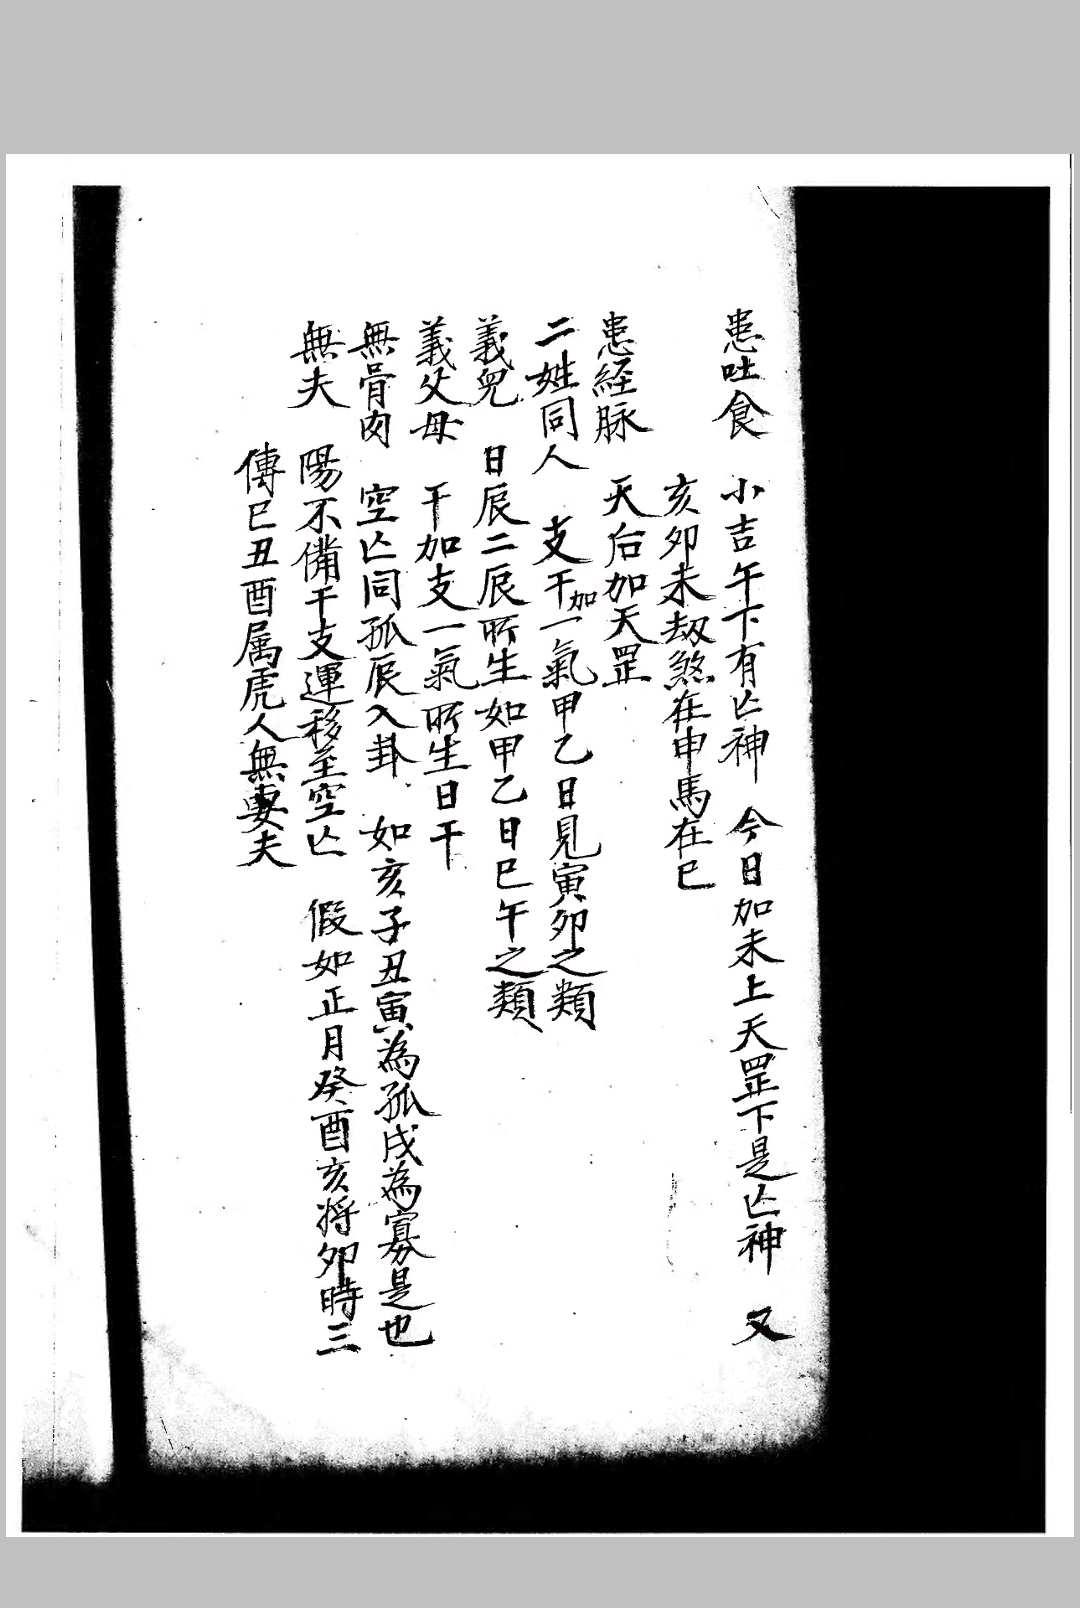 患吐食　小吉午下有亾神　今日加未上天罡下是亾神　又
亥卯未刼煞在申馬在巳
患経脉　天后加天罡
二姓同人　支干加一氣甲乙日見寅卯之類
義兒　日辰二辰所生如甲乙日巳午之類
義父母　干加支一氣所生日干
無骨肉　空亾同孤辰入卦　如亥子丑寅為孤戌為寡是也
無夫　陽不備干支運移至空亾　假如正月癸酉亥将卯時三
傳巳丑酉属虎人無妻夫